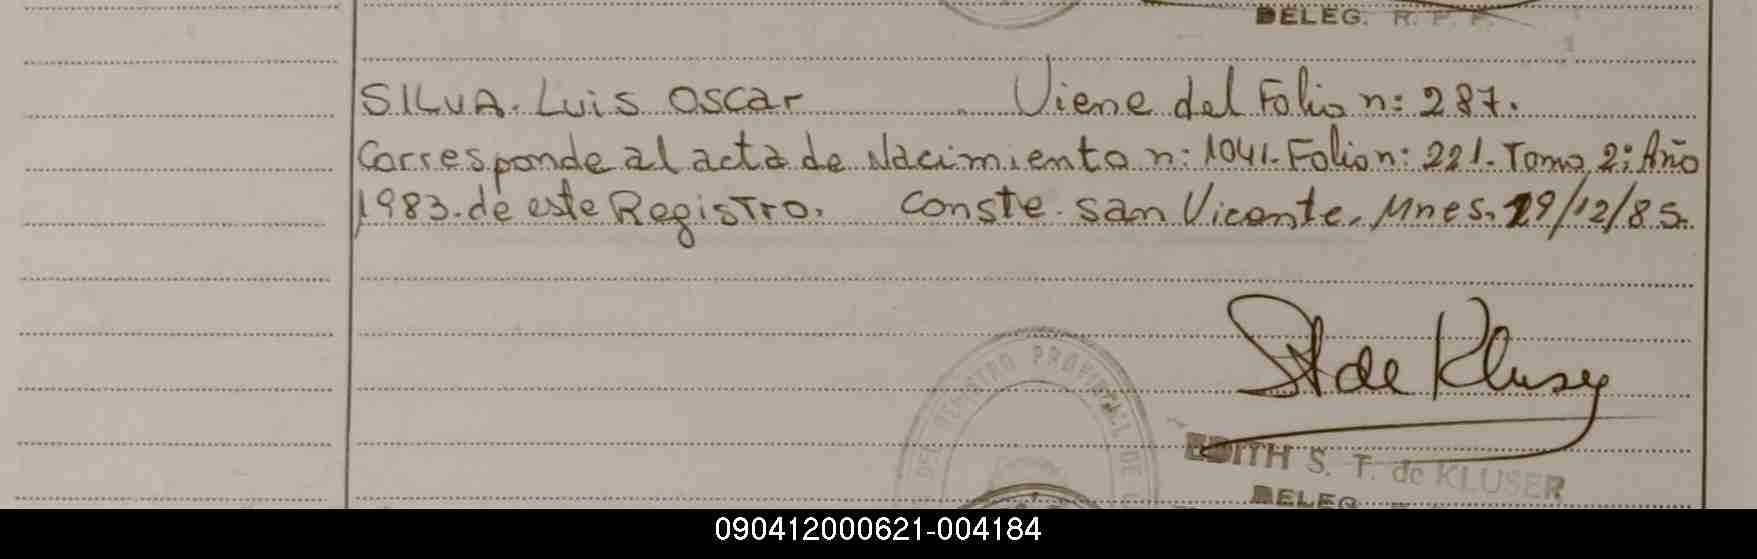 DELEG. R. P. P.
SILVA. Luis Oscar Viene del Folio n: 287.
Corresponde al acta de Nacimiento n: 1041. Folio n: 221. Tomo 2: Año
1983. de este Registro. Conste. San Vicente. Mnes. 19/12/85.
St de Kluser
DEL REGISTRO PROVINCIAL DE
EDITH S. T. de KLUSER
DELEG.
090412000621-004184